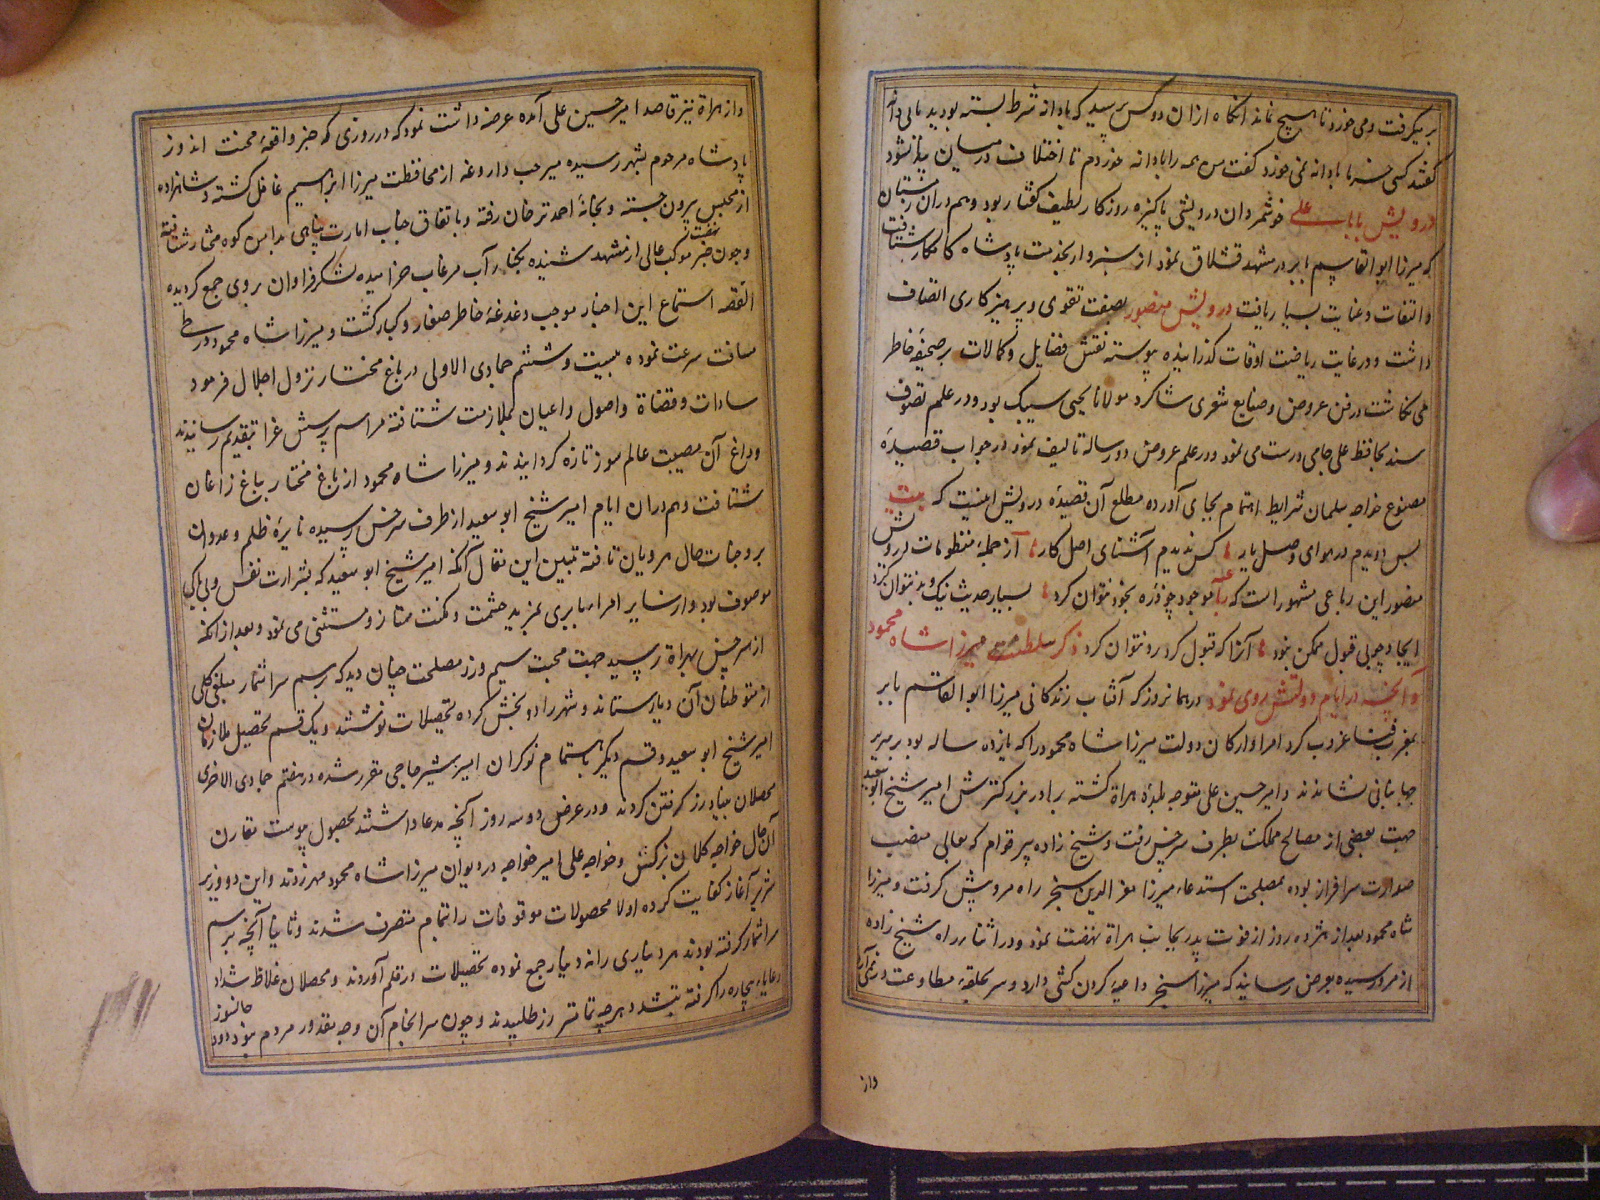 بر میگرفت و می خورد تا هیچ نماند آنگاه ازان دو کس پرسید که با دانه شرط بسته بودید یا بی دانه
گفتند کسی خرما با دانه نمی خورد گفت من همه را با دانه خوردم تا اختلاف در میان پیدا نشود
درویش بابا علی خوشمردان درویشی پاکیزه روزکار لطیف گفتار بود و هم دران زمستان
که میرزا ابو القاسم بابر در مشهد قشلاق نمود از سبزوار بخدمت پادشاه کامکار شتافت
و التفات و عنایت بسیار یافت درویش منصور بصفت تقوی و پرهیزکاری اتصاف
داشت و در غایت ریاضت اوقات گذرانیده پیوسته نقش فضایل و کمالات بر صحیفهٔ خاطر
می نگاشت در فن عروض و صنایع شعری شاکرد مولانا یحیی سیبک بود و در علم تصوف
سند بحافظ علی جامی درست می نمود و در علم عروض دو رساله تالیف نمود در جواب قصیدهٔ
مصنوع خواجه سلمان شرایط اهتمام بجای آورده مطلع آن قصیدهٔ درویش اینست که بیت
بس دویدم در هوای وصل یار کس ندیدم آشنای اصل کار از جملهٔ منظومات درویش
منصور این رباعی مشهور است که رباعیه موجود چو ذره بخود نتوان کرد بسیار حدیث نیک و بد نتوان کرد
ایجاد چو بی قبول ممکن نبود آنرا که قبول کرد رد نتوان کرد ذکر سلطنت میرزا شاه محمود
و آنچه در ایام دولتش روی نمود در همانروز که آفتاب زندگانی میرزا ابو القاسم بابر
بمغرب فنا غروب کرد امرا و ارکان دولت میرزا شاه محمود را که یازده ساله بود بر سریر
جهانبانی نشاندند و امیر حسین علی متوجه بلدهٔ هراة گشته برادر بزرگترش امیر شیخ ابو سعید
جهت بعضی از مصالح مملکت بطرف سرخس رفت و شیخ زاده پیر قوام که بعالی منصب
صدارت سرافراز بوده بمصلحت استدعاء میرزا معز الدین سنجر راه مرو پیش گرفت و میرزا
شاه محمود بعد از هژده روز از فوت پدر بجانب هراة نهضت نمود و در اثناء راه شیخ زاده
از مرو رسیده بعرض رسانید که میرزا سنجر داعیهٔ گردن کشی دارد و سر بحلقهٔ مطاوعت در نمی آرد
واز
و از هراة نیز قاصد امیر حسین علی آمده عرضه داشت نمود که در روزی که خبر واقعهٔ محنت اندوز
پادشاه مرحوم بشهر رسیده میر حب داروغه از محافظت میرزا ابراهیم غافل گشته و شاهزاده
از محبس بیرون جسته و بخانهٔ احمد ترخان رفته و باتفاق جناب امارت پناهی بدامن کوه مختار شتافته
و چون خبر نهضت موکب عالی از مشهد شنیده بکنار آب مرغاب خرامیده لشکر فراوان بروی جمع گردیده
القصه استماع این اخبار موجب دغدغهٔ خاطر صغار و کبار گشت و میرزا شاه محمود در طی
مسافت سرعت نموده بیست و ششم جمادی الاولی در باغ مختار نزول اجلال فرمود
سادات و قضاة و اصول و اعیان بملازمت شتافته مراسم پرسش عزا بتقدیم رسانیدند
و داغ آن مصیبت عالم سوز تازه کردانیدند و میرزا شاه محمود از باغ مختار بباغ زاغان
شتافت و هم دران ایام امیر شیخ ابو سعید از طرف سرخس رسیده نایرهٔ ظلم و عدوان
بر وجنات حال هرویان تافته تبیین این مقال آنکه امیر شیخ ابو سعید که بشرارت نفس و بی باکی
موصوف بود و از سایر امراء بابری بمزید حشمت و مکنت ممتاز و مستثنی می نمود و بعد از آنکه
از سرخس بهراة رسید جهت محبت سیم و زر مصلحت چنان دید که برسم سرانشمار مبلغی کلی
از متوطنان آن دیار ستاند و شهر را دو بخش کرده تحصیلات نوشتند و یک قسم تحصیل ملازمان
امیر شیخ ابو سعید و قسم دیگر باهتمام نوکران امیر شیر حاجی مقرر شده در هفتم جمادی الاخری
محصلان بنیاد زر گرفتن کردند و در عرض دو سه روز آنچه مدعا داشتند بحصول پیوست مقارن
آن حال خواجه کلان برکش و خواجه علی امیر خواجه در دیوان میرزا شاه محمود مهر زدند و این دو وزیر
شریر آغاز کفایت کرده اولا محصولات موقوفات را بتمام متصرف شدند و ثانیا آنچه برسم
سرانشمار گرفته بودند هر دیناری را نه دینار جمع نموده تحصیلات در قلم آوردند و محصلان غلاظ شداد
رعایاء بیچاره را گرفته بتشدد هر چه تمامتر زر طلبیدند و چون سرانجام آن وجه مقدور مردم نبود دود
جانسوز